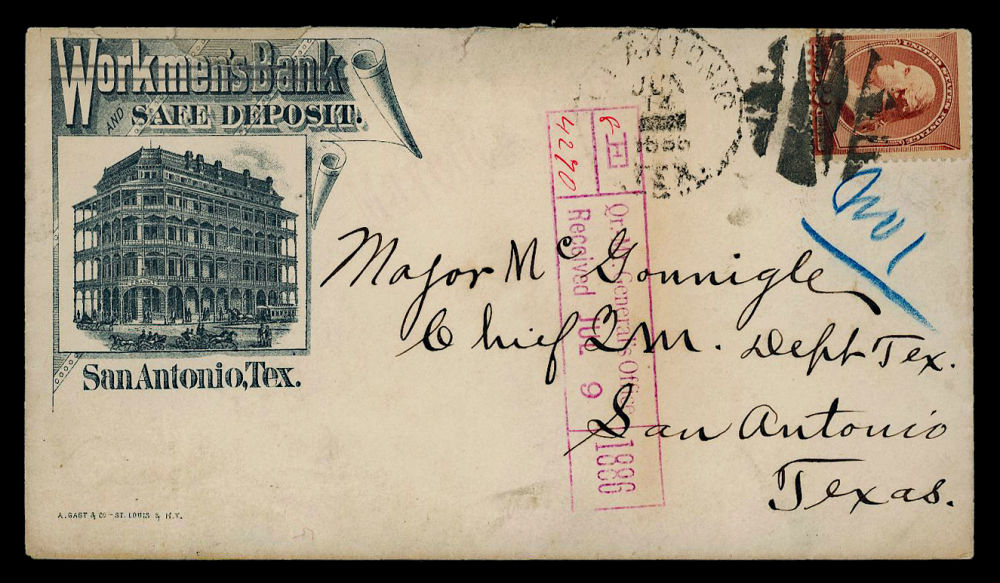 Workmen's Bank
AND SAFE DEPOSIT.
San Antonio, Tex.
A. GAST & CO - ST. LOUIS & N.Y.
ANTONIO
JUN
14
TEX
UNITED STATES POSTAGE
8-E
4290
Qr. M. General's Office
Received JUL 9 1886
Major McGonnigle
Chief Q M. Dept Tex.
San Antonio
Texas.